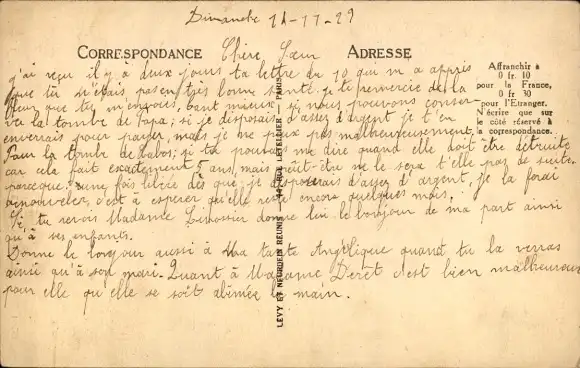 Dimanche 24-11-29
CORRESPONDANCE Chère Sœur ADRESSE
j'ai reçu il y a deux jours ta lettre du 20 qui m'a appris
que tu n'étais pas en très bonne santé. je te remercie de la
fleur que tu m'envoies, tant mieux si nous pouvons conser-
ver la tombe de Papa; si je disposais d'assez d'argent je t'en
enverrais pour payer, mais je ne peux pas malheureusement.
Pour la tombe de si tu pouvais me dire quand elle doit être détruite
car cela fait exactement 5 ans, mais peut-être ne le sera t'elle pas de suite,
parceque une fois libéré dès que je disposerais d'assez d'argent, je la ferai
renouveler, c'est à espérer qu'elle reste encore quelques mois.
Si tu revois Madame donne lui le bonjour de ma part ainsi
qu'à ses enfants.
Donne le bonjour aussi à Ma tante Angélique quand tu la verras
ainsi qu'à son mari. Quant à Madame Deret c'est bien malheureux
pour elle qu'elle se soit abîmée la main.
Affranchir à
0 fr. 10
pour la France,
0 fr 30
pour l'Etranger.
N'écrire que sur
le côté réservé à
la correspondance.
LEVY ET NEURDEIN REUNIS LETELLIER PARIS